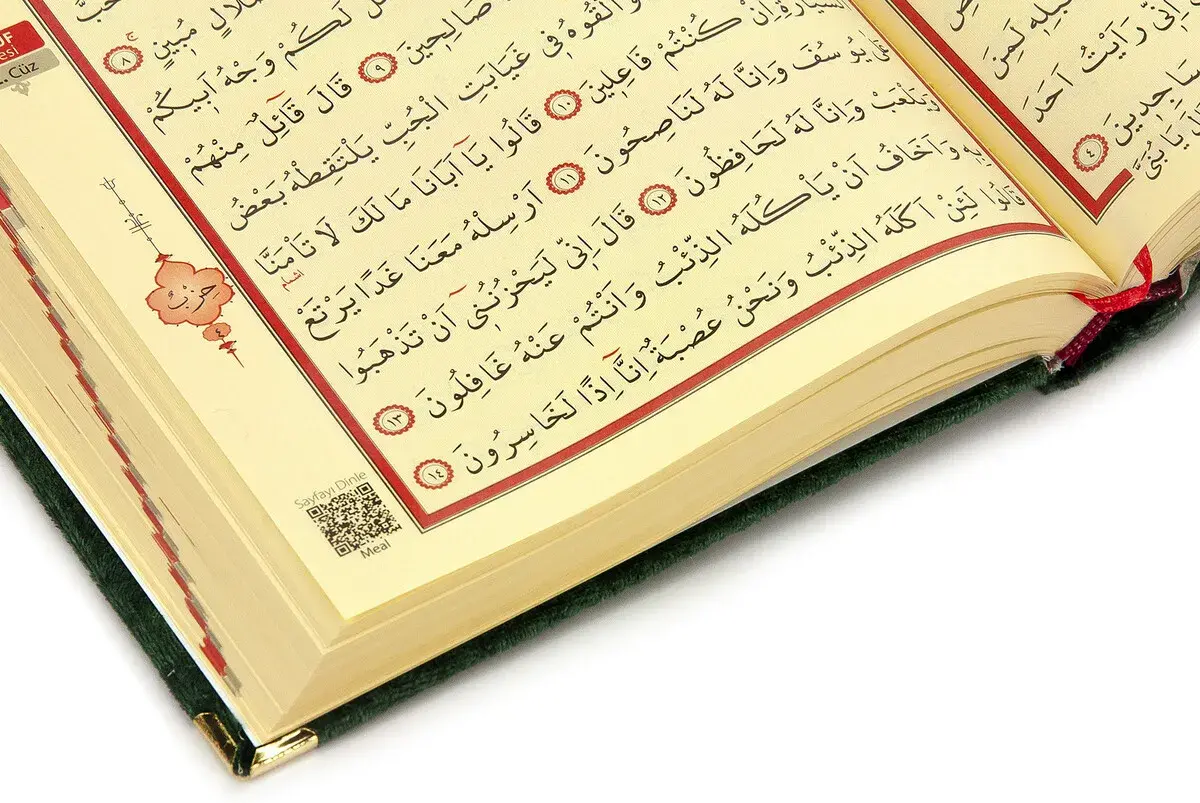 اِنّ۪ي رَاَيْتُ اَحَدَ
سَاجِد۪ينَ ﴿٤﴾
يَا بُنَيَّ
Cüz
مُب۪ينٍ ﴿٨﴾
لَكُمْ وَجْهُ اَب۪يكُمْ
صَالِح۪ينَ ﴿٩﴾ قَالَ قَٓائِلٌ مِنْهُمْ
وَاَلْقُوهُ ف۪ي غَيَابَتِ الْجُبِّ يَلْتَقِطْهُ بَعْضُ
السَّيَّارَةِ اِنْ كُنْتُمْ فَاعِل۪ينَ ﴿١٠﴾ قَالُوا يَٓا اَبَانَا مَا لَكَ لَا تَأْمَنَّا
عَلٰى يُوسُفَ وَاِنَّا لَهُ لَنَاصِحُونَ ﴿١١﴾ اَرْسِلْهُ مَعَنَا غَدًا يَرْتَعْ
وَيَلْعَبْ وَاِنَّا لَهُ لَحَافِظُونَ ﴿١٢﴾ قَالَ اِنّ۪ي لَيَحْزُنُن۪ٓي اَنْ تَذْهَبُوا
بِه۪ وَاَخَافُ اَنْ يَأْكُلَهُ الذِّئْبُ وَاَنْتُمْ عَنْهُ غَافِلُونَ ﴿١٣﴾
قَالُوا لَئِنْ اَكَلَهُ الذِّئْبُ وَنَحْنُ عُصْبَةٌ اِنَّٓا اِذًا لَخَاسِرُونَ ﴿١٤﴾
حِزْبٌ
٤
Sayfayı Dinle
Meal